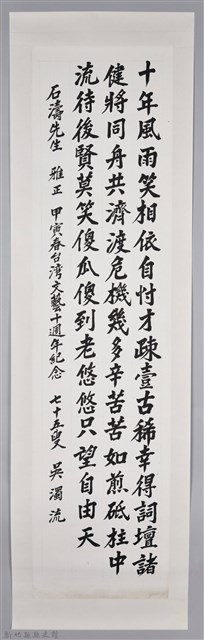 十年風雨笑相依自忖才疎壹古稀幸得詞壇諸
健將同舟共濟渡危機幾多辛苦苦如煎砥柱中
流待後賢莫笑傻瓜傻到老悠悠只望自由天
石濤先生 雅正 甲寅春台湾文藝十週年紀念 七十五叟 吳濁流